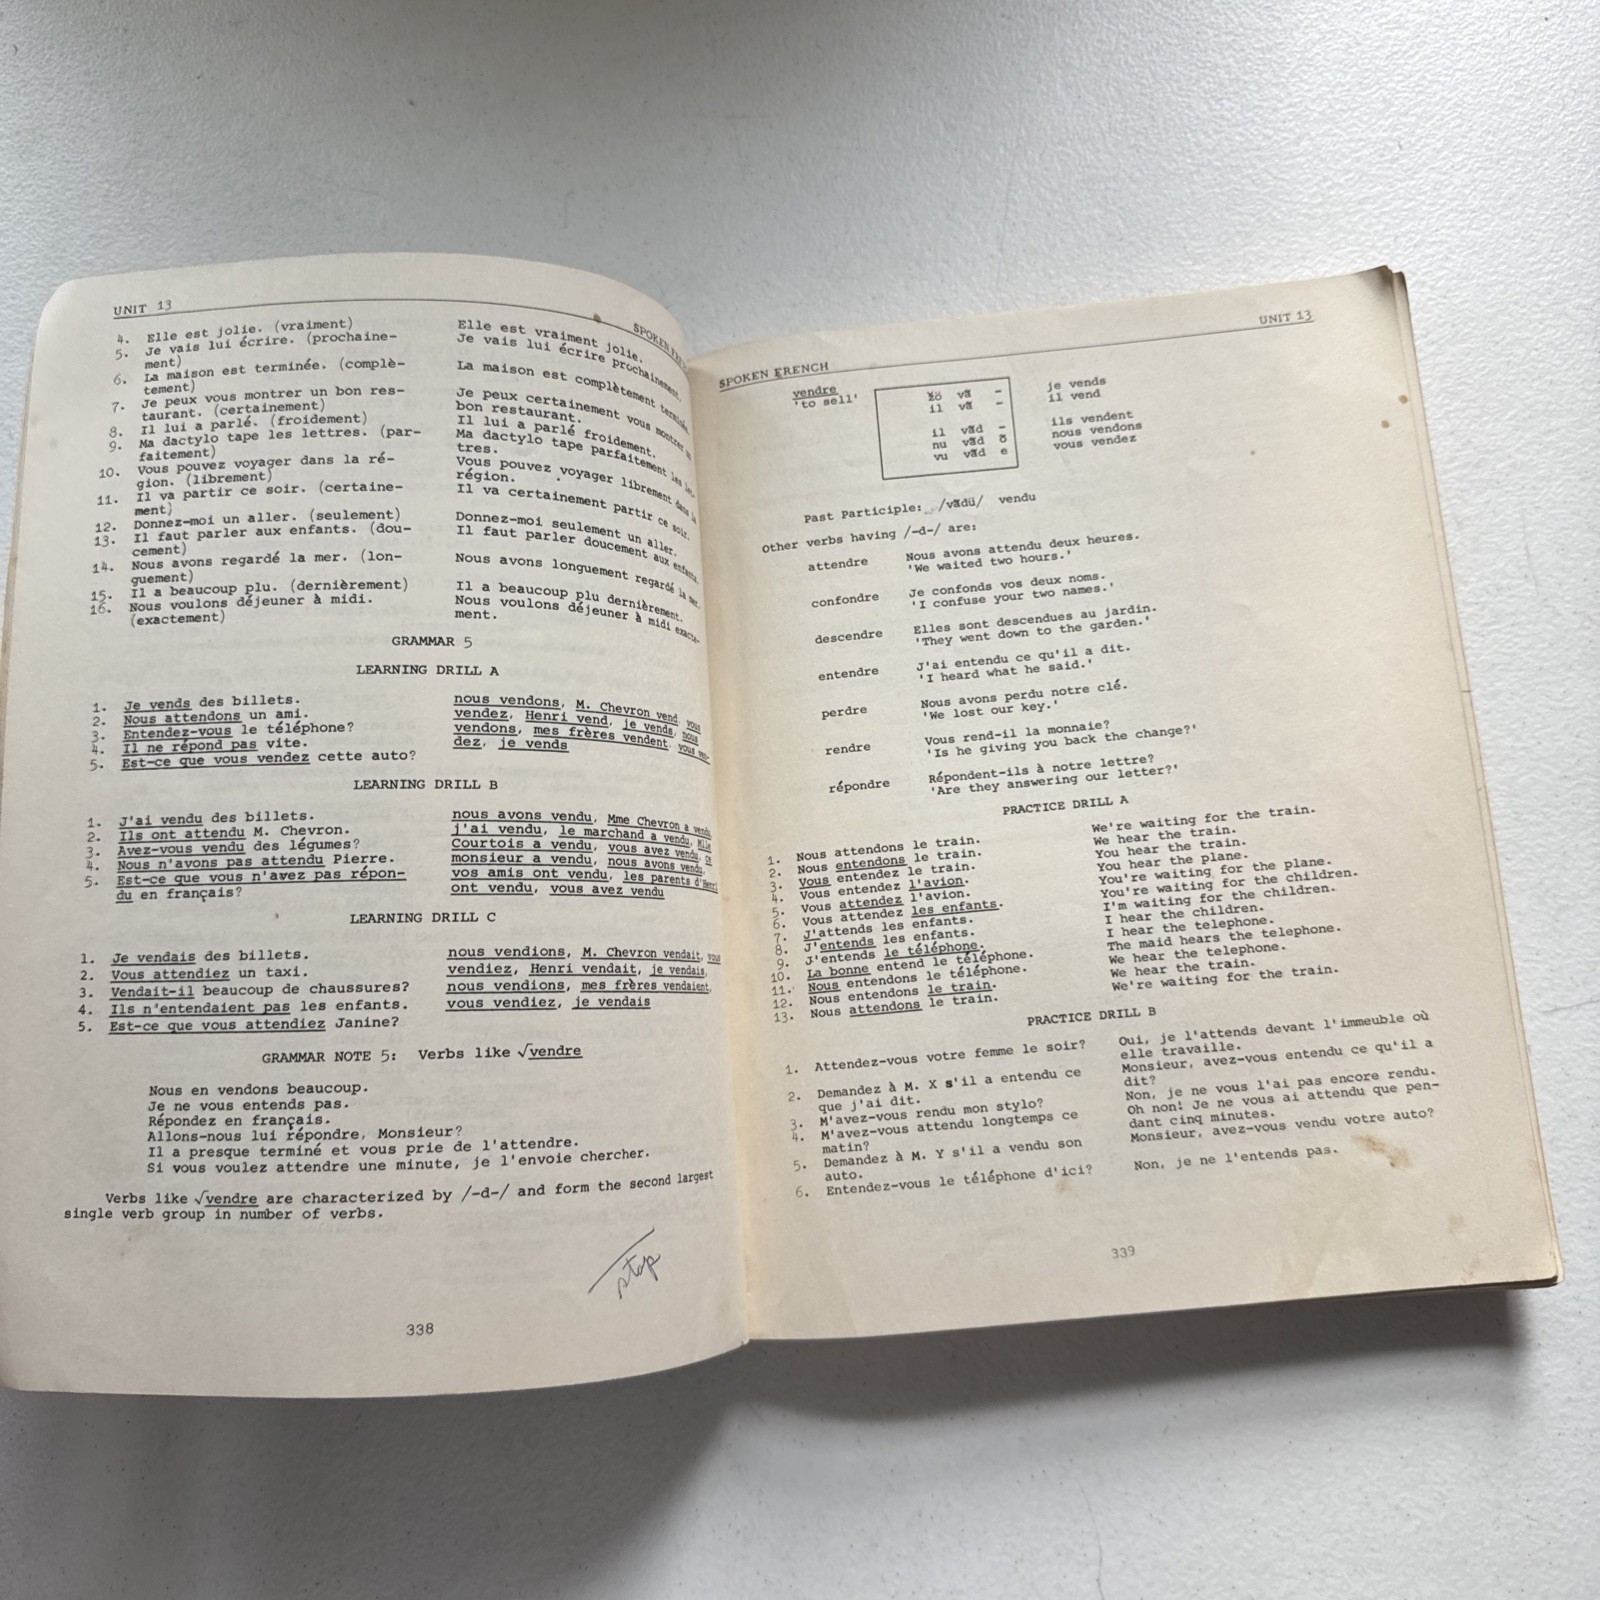 UNIT 13
SPOKEN
4. Elle est jolie. (vraiment) Elle est vraiment jolie.
5. Je vais lui écrire. (prochaine- Je vais lui écrire prochainement.
ment)
6. La maison est terminée. (complè- La maison est complètement terminée.
tement)
7. Je peux vous montrer un bon res- Je peux certainement vous montrer un
taurant. (certainement) bon restaurant.
8. Il lui a parlé. (froidement) Il lui a parlé froidement.
9. Ma dactylo tape les lettres. (par- Ma dactylo tape parfaitement les let-
faitement) tres.
10. Vous pouvez voyager dans la ré- Vous pouvez voyager librement dans la
gion. (librement) région.
11. Il va partir ce soir. (certaine- Il va certainement partir ce soir.
ment)
12. Donnez-moi un aller. (seulement) Donnez-moi seulement un aller.
13. Il faut parler aux enfants. (dou- Il faut parler doucement aux enfants.
cement)
14. Nous avons regardé la mer. (lon- Nous avons longuement regardé la mer.
guement)
15. Il a beaucoup plu. (dernièrement) Il a beaucoup plu dernièrement.
16. Nous voulons déjeuner à midi. Nous voulons déjeuner à midi exacte-
(exactement) ment.
GRAMMAR 5
LEARNING DRILL A
1. Je vends des billets. nous vendons, M. Chevron vend, vous
2. Nous attendons un ami. vendez, Henri vend, je vends, nous
3. Entendez-vous le téléphone? vendons, mes frères vendent, vous ven-
4. Il ne répond pas vite. dez, je vends
5. Est-ce que vous vendez cette auto?
LEARNING DRILL B
1. J'ai vendu des billets. nous avons vendu, Mme Chevron a vendu,
2. Ils ont attendu M. Chevron. j'ai vendu, le marchand a vendu, Mlle
3. Avez-vous vendu des légumes? Courtois a vendu, vous avez vendu, ce
4. Nous n'avons pas attendu Pierre. monsieur a vendu, nous avons vendu,
5. Est-ce que vous n'avez pas répon- vos amis ont vendu, les parents d'Henri
du en français? ont vendu, vous avez vendu
LEARNING DRILL C
1. Je vendais des billets. nous vendions, M. Chevron vendait, vous
2. Vous attendiez un taxi. vendiez, Henri vendait, je vendais,
3. Vendait-il beaucoup de chaussures? nous vendions, mes frères vendaient,
4. Ils n'entendaient pas les enfants. vous vendiez, je vendais
5. Est-ce que vous attendiez Janine?
GRAMMAR NOTE 5: Verbs like √vendre
Nous en vendons beaucoup.
Je ne vous entends pas.
Répondez en français.
Allons-nous lui répondre, Monsieur?
Il a presque terminé et vous prie de l'attendre.
Si vous voulez attendre une minute, je l'envoie chercher.
Verbs like √vendre are characterized by /-d-/ and form the second largest
single verb group in number of verbs.
stop
338
SPOKEN FRENCH UNIT 13
vendre vã - je vends
'to sell' il vã - il vend
il vãd - ils vendent
nu vãd õ nous vendons
vu vãd e vous vendez
Past Participle: /vãdü/ vendu
Other verbs having /-d-/ are:
attendre Nous avons attendu deux heures.
'We waited two hours.'
confondre Je confonds vos deux noms.
'I confuse your two names.'
descendre Elles sont descendues au jardin.
'They went down to the garden.'
entendre J'ai entendu ce qu'il a dit.
'I heard what he said.'
perdre Nous avons perdu notre clé.
'We lost our key.'
rendre Vous rend-il la monnaie?
'Is he giving you back the change?'
répondre Répondent-ils à notre lettre?
'Are they answering our letter?'
PRACTICE DRILL A
1. Nous attendons le train. We're waiting for the train.
2. Nous entendons le train. We hear the train.
3. Vous entendez le train. You hear the train.
4. Vous entendez l'avion. You hear the plane.
5. Vous attendez l'avion. You're waiting for the plane.
6. Vous attendez les enfants. You're waiting for the children.
7. J'attends les enfants. I'm waiting for the children.
8. J'entends les enfants. I hear the children.
9. J'entends le téléphone. I hear the telephone.
10. La bonne entend le téléphone. The maid hears the telephone.
11. Nous entendons le téléphone. We hear the telephone.
12. Nous entendons le train. We hear the train.
13. Nous attendons le train. We're waiting for the train.
PRACTICE DRILL B
1. Attendez-vous votre femme le soir? Oui, je l'attends devant l'immeuble où
elle travaille.
2. Demandez à M. X s'il a entendu ce Monsieur, avez-vous entendu ce qu'il a
que j'ai dit. dit?
3. M'avez-vous rendu mon stylo? Non, je ne vous l'ai pas encore rendu.
4. M'avez-vous attendu longtemps ce Oh non! Je ne vous ai attendu que pen-
matin? dant cinq minutes.
5. Demandez à M. Y s'il a vendu son Monsieur, avez-vous vendu votre auto?
auto.
6. Entendez-vous le téléphone d'ici? Non, je ne l'entends pas.
339